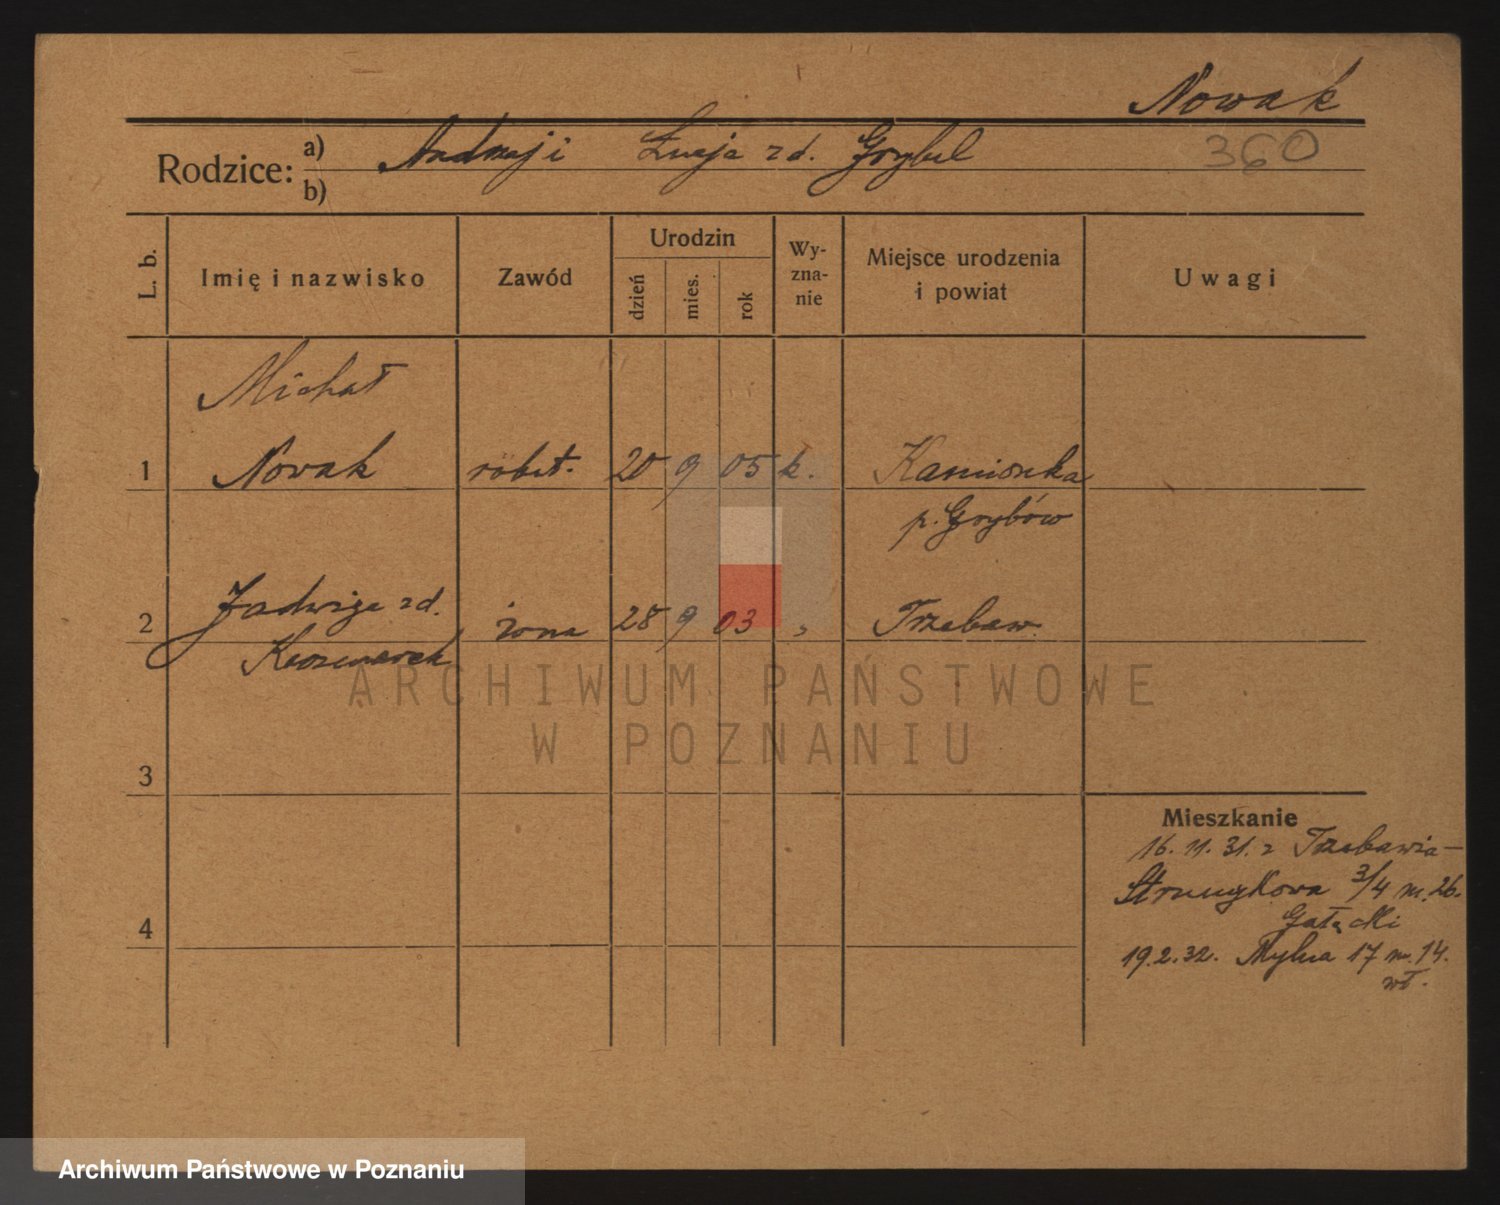 Nowak
360
Rodzice: a) Andrzej i Łucja zd. Grybel
b)
L. b.
Imię i nazwisko
Zawód
Urodzin
dzień
mies.
rok
Wy-
zna-
nie
Miejsce urodzenia
i powiat
Uwagi
Michał
1 Nowak robot. 20 9 05 k. Kamionka
p. Grybów
2 Jadwiga zd. żona 28 9 03 „ Trzebaw
Kaczmarek
3
Mieszkanie
16.11.31. z Trzebawia –
Strumykowa 3/4 m. 26.
Gałecki
4
19.2.32. Mylna 17 m. 14.
wł.
ARCHIWUM PAŃSTWOWE
W POZNANIU
Archiwum Państwowe w Poznaniu